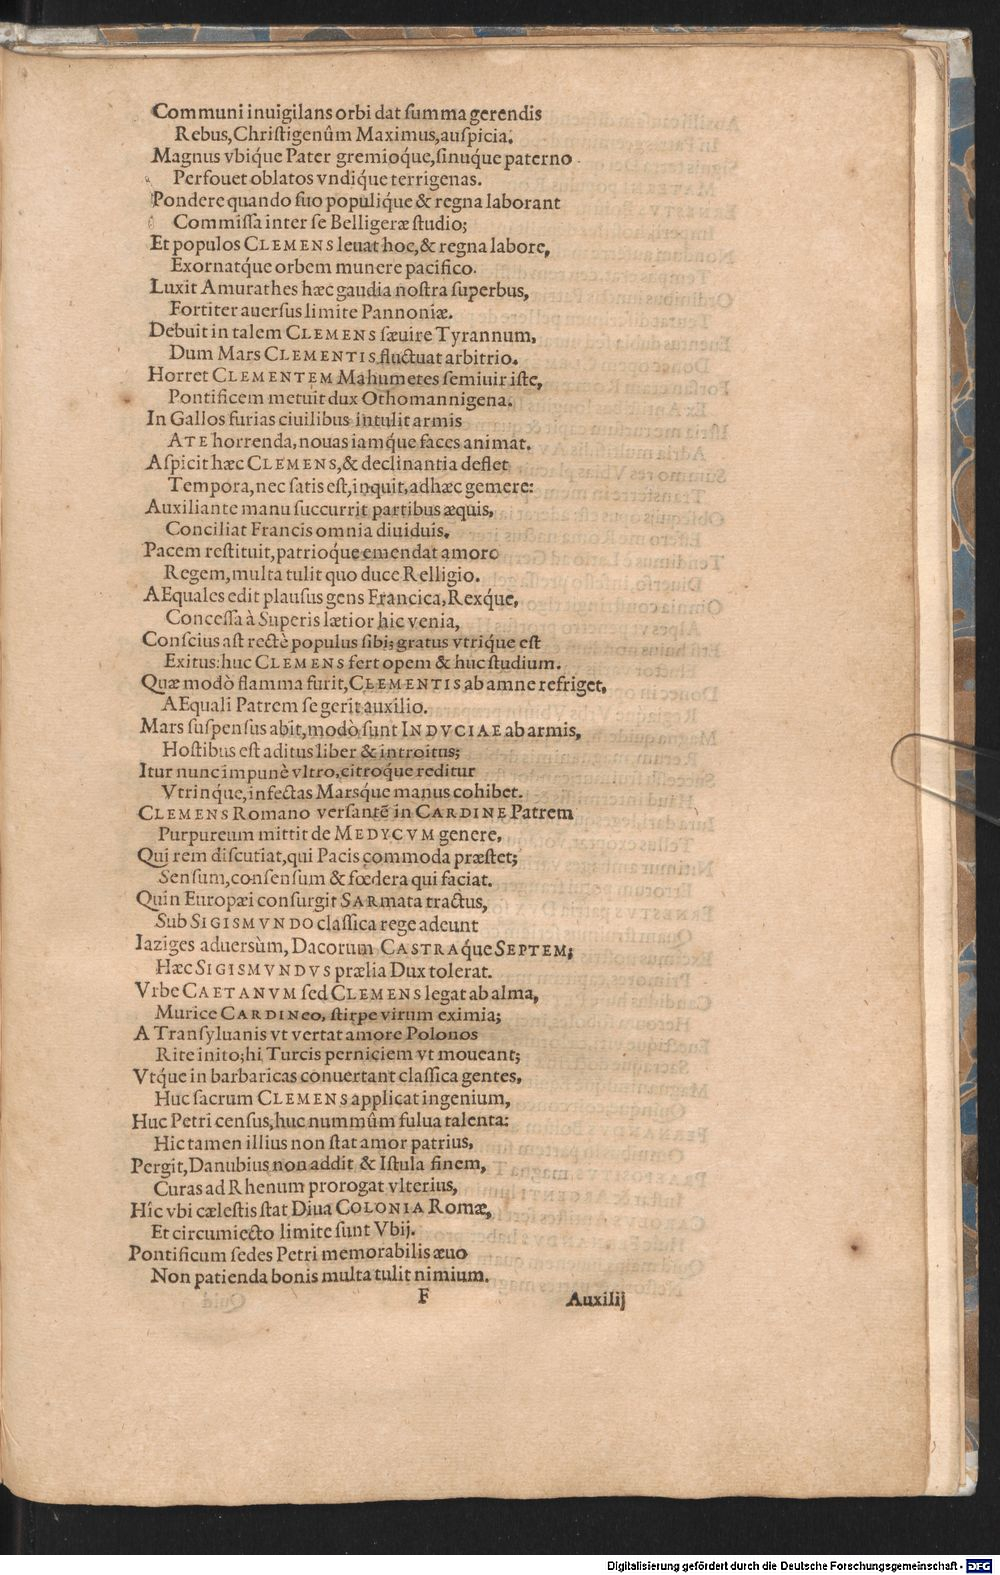 Communi inuigilans orbi dat ſumma gerendis
Rebus, Chriſtigenûm Maximus, auſpicia.
Magnus vbiq́ue Pater gremioq́ue, ſinuq́ue paterno
Perfouet oblatos vndiq́ue terrigenas.
Pondere quando ſuo populiq́ue & regna laborant
Commiſſa inter ſe Belligeræ ſtudio;
Et populos CLEMENS leuat hoc, & regna labore,
Exornatq́ue orbem munere pacifico.
Luxit Amurathes hæc gaudia noſtra ſuperbus,
Fortiter auerſus limite Pannoniæ.
Debuit in talem CLEMENS ſæuire Tyrannum,
Dum Mars CLEMENTIS fluctuat arbitrio.
Horret CLEMENTEM Mahumetes ſemiuir iſte,
Pontificem metuit dux Othomannigena.
In Gallos furias ciuilibus intulit armis
ATE horrenda, nouas iamq́ue faces animat.
Aſpicit hæc CLEMENS, & declinantia deflet
Tempora, nec ſatis eſt, inquit, adhæc gemere:
Auxiliante manu ſuccurrit partibus æquis,
Conciliat Francis omnia diuiduis.
Pacem reſtituit, patrioq́ue emendat amore
Regem, multa tulit quo duce Relligio.
AEquales edit plauſus gens Francica, Rexq́ue,
Conceſſa à Superis lætior hic venia,
Conſcius aſt rectè populus ſibi; gratus vtriq́ue eſt
Exitus: huc CLEMENS fert opem & huc ſtudium.
Quæ modò flamma furit, CLEMENTIS ab amne refriget,
AEquali Patrem ſe gerit auxilio.
Mars ſuſpenſus abit, modò ſunt INDVCIAE ab armis,
Hoſtibus eſt aditus liber & introitus;
Itur nunc impunè vltro, citroq́ue reditur
Vtrinq́ue, infectas Marsq́ue manus cohibet.
CLEMENS Romano verſantē in CARDINE Patrem
Purpureum mittit de MEDYCVM genere,
Qui rem diſcutiat, qui Pacis commoda præſtet;
Senſum, conſenſum & fœdera qui faciat.
Quin Europæi conſurgit SARmata tractus,
Sub SIGISMVNDO claſſica rege adeunt
Iaziges aduerſùm, Dacorum CASTRAq́ue SEPTEM;
Hæc SIGISMVNDVS prælia Dux tolerat.
Vrbe CAETANVM ſed CLEMENS legat ab alma,
Murice CARDINeo, ſtirpe virum eximia;
A Tranſyluanis vt vertat amore Polonos
Rite inito; hi Turcis perniciem vt moueant;
Vtq́ue in barbaricas conuertant claſſica gentes,
Huc ſacrum CLEMENS applicat ingenium,
Huc Petri cenſus, huc nummûm fulua talenta:
Hic tamen illius non ſtat amor patrius,
Pergit, Danubius non addit & Iſtula finem,
Curas ad Rhenum prorogat vlterius,
Hîc vbi cæleſtis ſtat Diua COLONIA Romæ,
Et circumiecto limite ſunt Vbij.
Pontificum ſedes Petri memorabilis æuo
Non patienda bonis multa tulit nimium.
F Auxilij
Digitalisierung gefördert durch die Deutsche Forschungsgemeinschaft - DFG